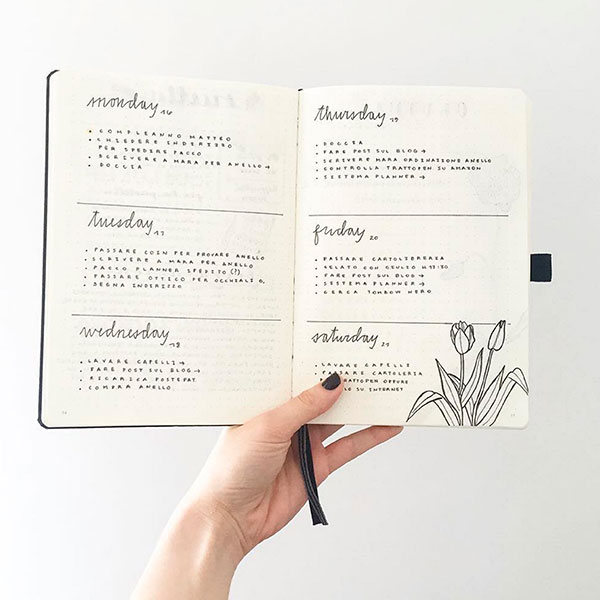 monday 16
• COMPLEANNO MATTEO
• CHIEDERE INDIRIZZO
PER SPEDIRE PACCO
• SCRIVERE A MARA PER ANELLO →
• DOCCIA
tuesday 17
• PASSARE COIN PER PROVARE ANELLO
• SCRIVERE A MARA PER ANELLO
• PACCO PLANNER SPEDITO (?)
• PASSARE OTTICO PER OCCHIALI G.
• SEGNA INDIRIZZO
wednesday 18
• LAVARE CAPELLI →
• FARE POST SUL BLOG →
• RICARICA POSTEPAY
• COMPRA ANELLO
thursday 19
• DOCCIA
• FARE POST SUL BLOG →
• SCRIVERE MARA ORDINAZIONE ANELLO
• CONTROLLA TRATTOPEN SU AMAZON
• SISTEMA PLANNER →
friday 20
• PASSARE CARTOLIBRERIA
• GELATO CON GIULIO
• FARE POST SUL BLOG →
• SISTEMA PLANNER →
• CERCA TOMBOW NERO
saturday 21
• LAVARE CAPELLI
• PASSARE CARTOLERIA
TRATTOPEN OPPURE
SU INTERNET